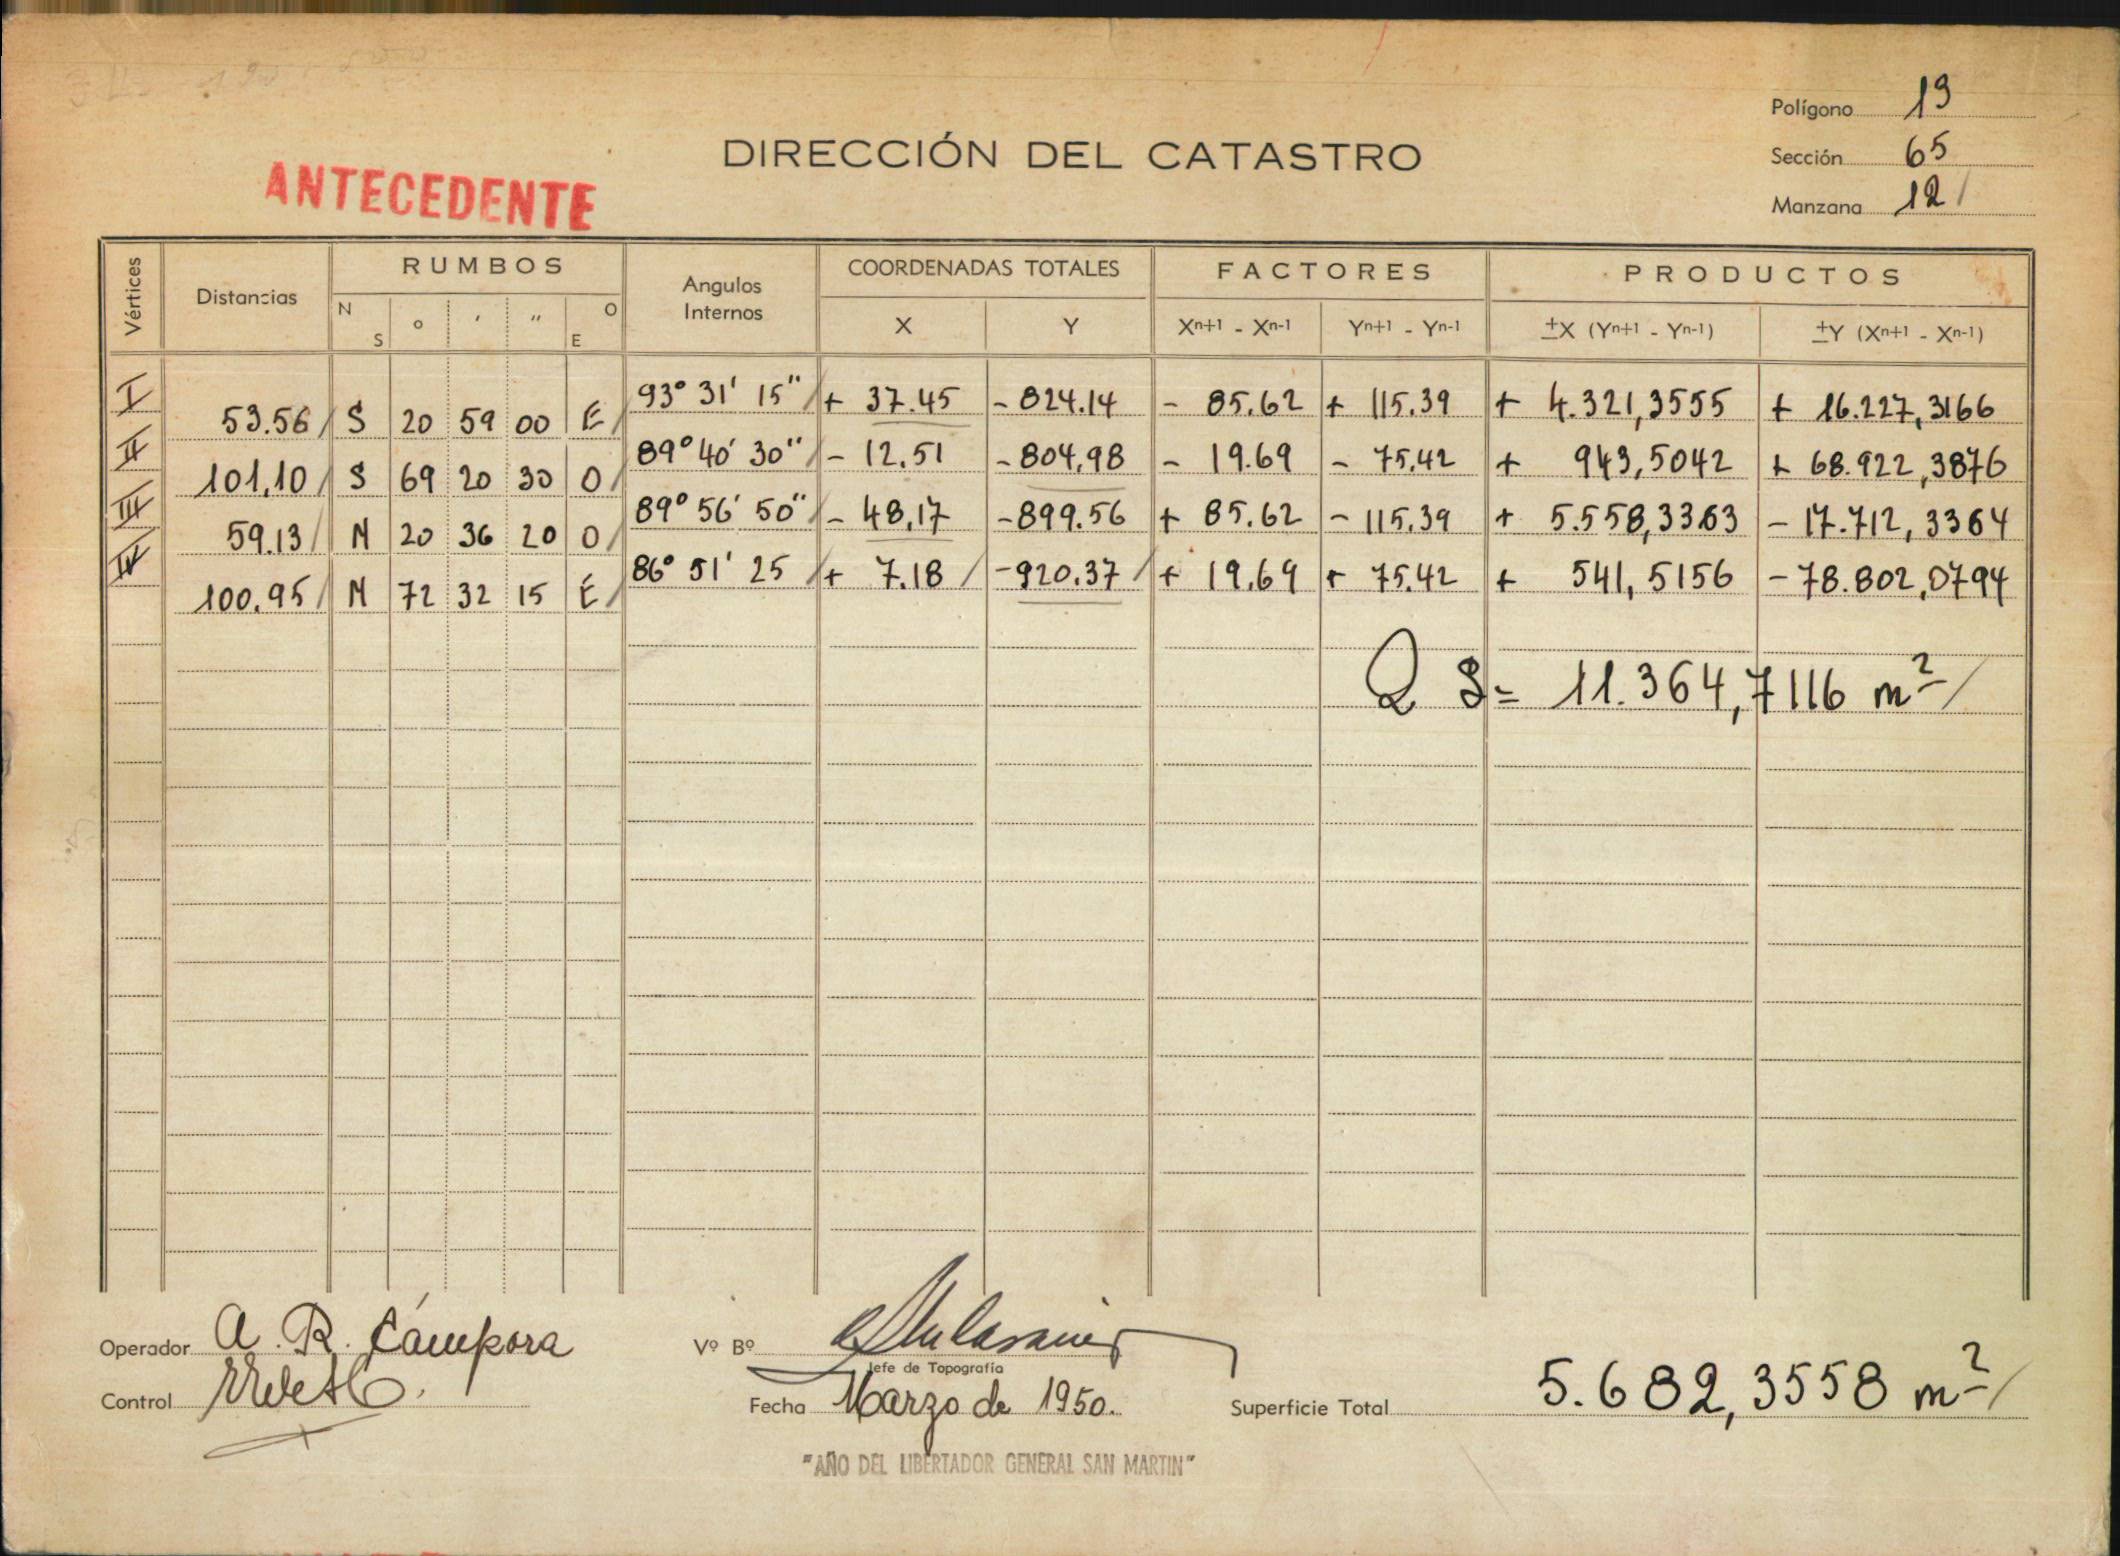 Polígono 19
DIRECCIÓN DEL CATASTRO
Sección 65
ANTECEDENTE
Manzana 12
Vértices Distancias RUMBOS Angulos Internos COORDENADAS TOTALES FACTORES PRODUCTOS
N S o ' " O E X Y Xn+1 - Xn-1 Yn+1 - Yn-1 ±X (Yn+1 - Yn-1) ±Y (Xn+1 - Xn-1)
I 53.56 S 20 59 00 E 93° 31' 15" + 37.45 - 824.14 - 85.62 + 115.39 + 4.321,3555 + 16.227,3166
II 101,10 S 69 20 30 O 89° 40' 30" - 12.51 - 804,98 - 19.69 - 75.42 + 943,5042 + 68.922,3876
III 59.13 N 20 36 20 O 89° 56' 50" - 48,17 - 899.56 + 85.62 - 115.39 + 5.558,3363 - 17.712,3364
IV 100.95 N 72 32 15 E 86° 51' 25 + 7.18 - 920.37 + 19.69 + 75.42 + 541,5156 - 78.802,0794
2 S = 11.364,7116 m²
Operador A. R. Cámpora Vº Bº
Jefe de Topografía
Control Fecha Marzo de 1950. Superficie Total 5.682,3558 m²
"AÑO DEL LIBERTADOR GENERAL SAN MARTIN"